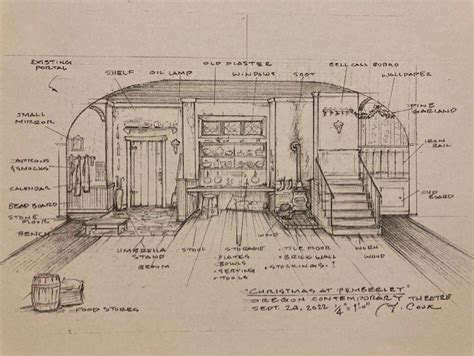 OLD PLASTER
BELL CALL BOARD
EXISTING
PORTAL
SHELF
OIL LAMP
WINDOWS
SOOT
WALLPAPER
SMALL
MIRROR
PINE
GARLAND
APRONS
& SMOCKS
IRON
RAIL
CALENDAR
CUP
BOARD
STONE
FLOOR
BENCH
UMBRELLA
STAND
BROOM
STOOL
STORAGE
• PLATES
• BOWLS
• SERVING
• TOOLS
• TILE FLOOR
• BRICK WALL
• STOCKINGS •
WORN
WOOD
WOOD
FOOD STORES
"CHRISTMAS AT PEMBERLEY"
OREGON CONTEMPORARY THEATRE
SEPT. 24, 2022 1/4"=1'-0" Cook